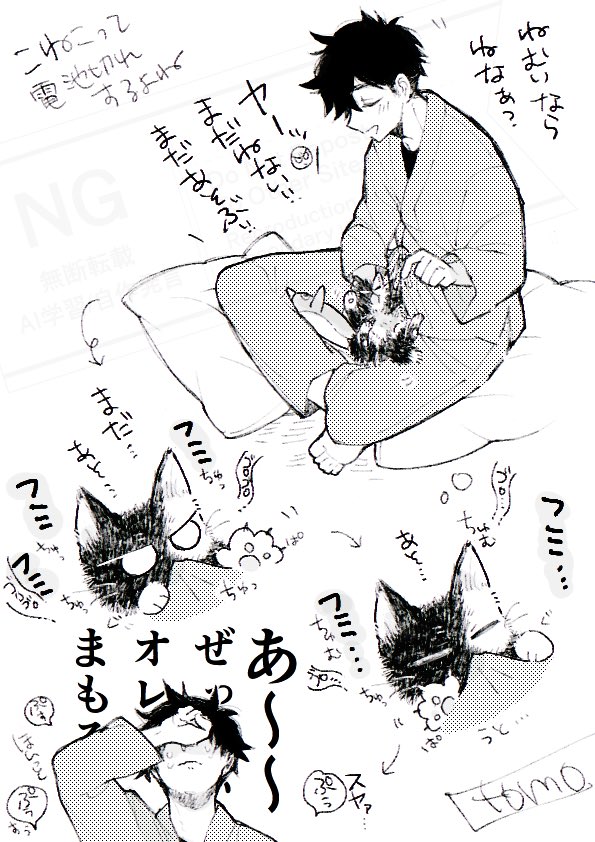 こねこって
電池切れ
するよね
ねむいなら
ねなぁ?
ヤーッ
まだねない!!
まだあそぶ!!
NG
無断転載
AI学習
まだ…
あそ…
フミ
フミ
フミ
ちゅっ
ちゅっ
ちゅっ
ちゅっ
ぐ
ぱ
フミ…
フミ…
ちゅむ
ちゅむ
ちゅっ
あそ…
ぐ
ぱ
うと…
スヤァ…
あ〜〜
ぜっ
オレ
まも
tomo